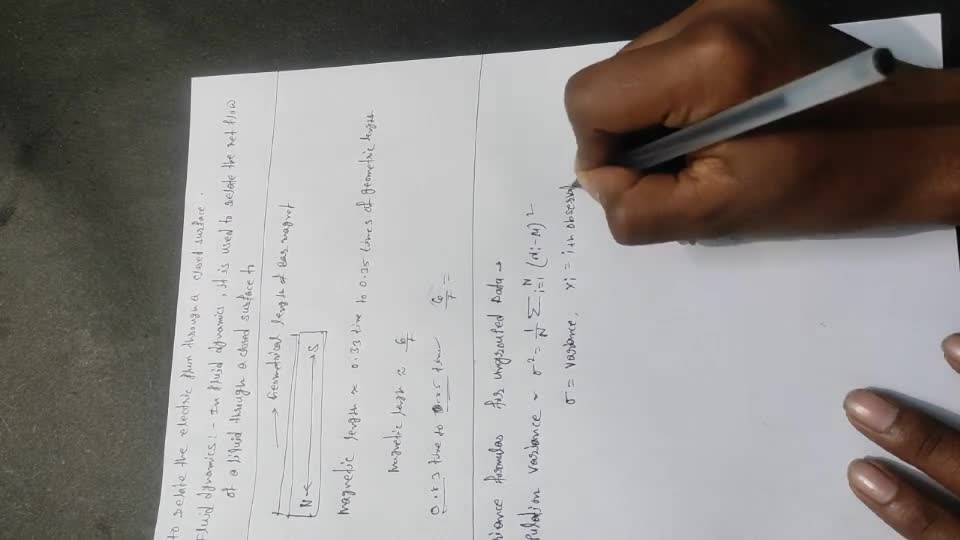 to relate the electric flux through a closed surface.
Fluid dynamics: - In fluid dynamics, it is used to relate the net flow
of a fluid through a closed surface to
→ Geometrical length of Bar magnet
N ← → S
Magnetic length ≈ 0.33 time to 0.35 times of geometric length
Magnetic length ≈ 6/7
time to time 6/7 =
riance formulas for ungrouted Data →
pulation variance ~ σ² = 1/N Σ i=1 N (xi - M)²
σ = variance, xi = ith observ